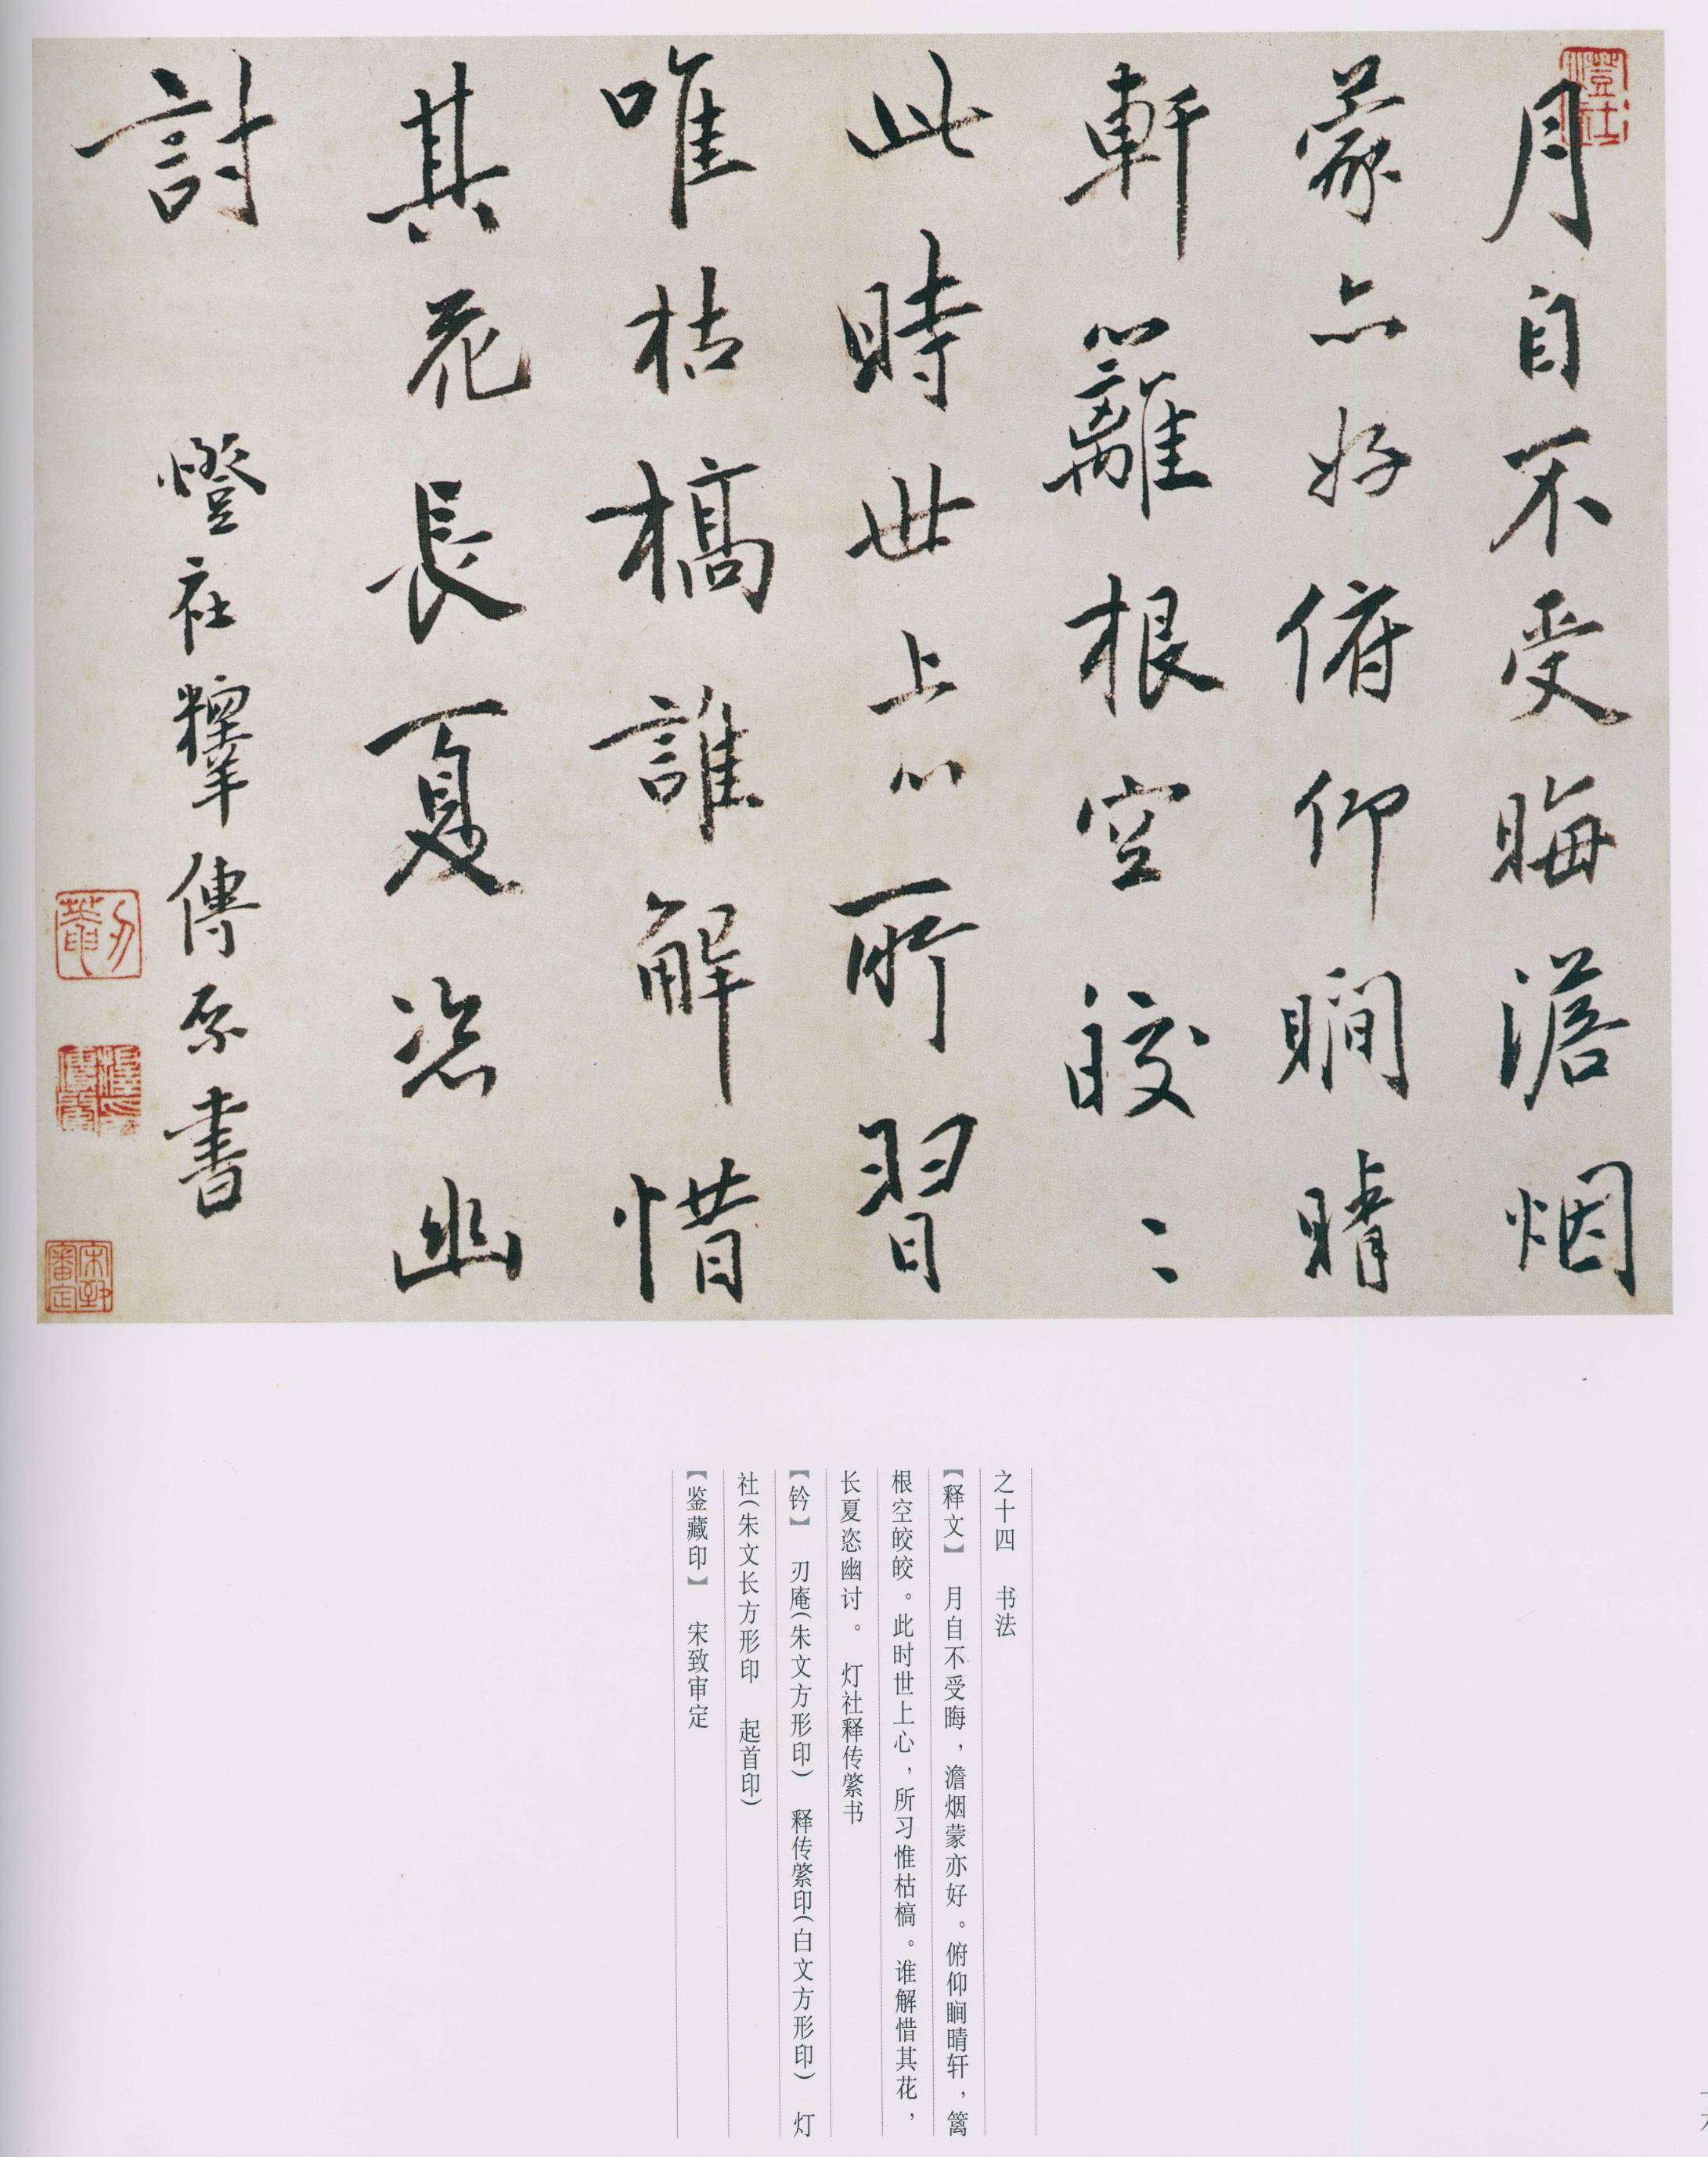 月自不受晦澹烟
蒙亦好俯仰瞷晴
軒籬根空皎〻
此時世上心所習
唯枯槁誰解惜
其花長夏恣幽
討
燈社釋傳綮書
之十四 书法
【释文】 月自不受晦，澹烟蒙亦好。俯仰瞷晴轩，篱
根空皎皎。此时世上心，所习惟枯槁。谁解惜其花，
长夏恣幽讨。 灯社释传綮书
【钤】 刃庵(朱文方形印) 释传綮印(白文方形印) 灯
社(朱文长方形印 起首印)
【鉴藏印】 宋致审定